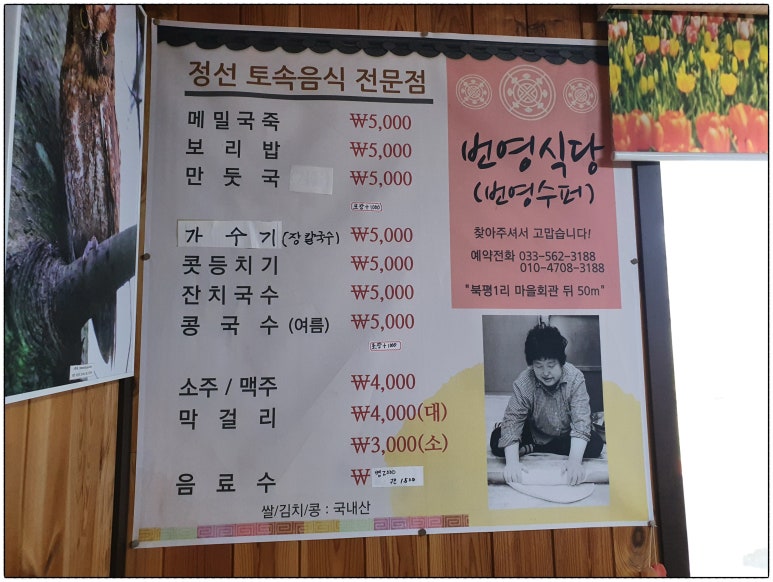 정선 토속음식 전문점
메밀국죽 ₩5,000
보리밥 ₩5,000
만둣국 ₩5,000
포장+1000
가수기 (장칼국수) ₩5,000
콧등치기 ₩5,000
잔치국수 ₩5,000
콩국수 (여름) ₩5,000
포장+1000
소주 / 맥주 ₩4,000
막걸리 ₩4,000(대)
₩3,000(소)
음료수 ₩
캔 1500
쌀/김치/콩 : 국내산
번영식당
(번영수퍼)
찾아주셔서 고맙습니다!
예약전화 033-562-3188
010-4708-3188
"북평1리 마을회관 뒤 50m"